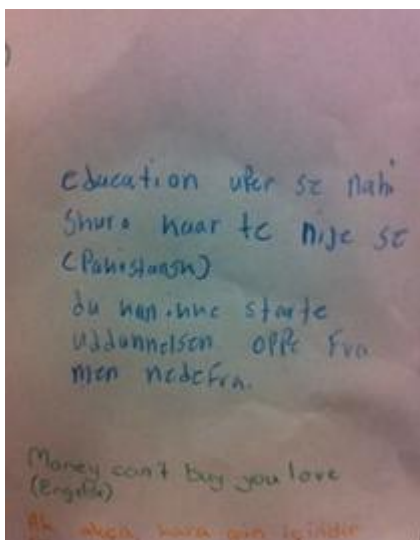 education uper se nahi
shuro kaar te nije se
(Pakistansk)
du kan inne starte
uddannelsen oppe fra
men nedefra.
Money can't buy you love
(Engelsk)
Ak akça kara gün içindir